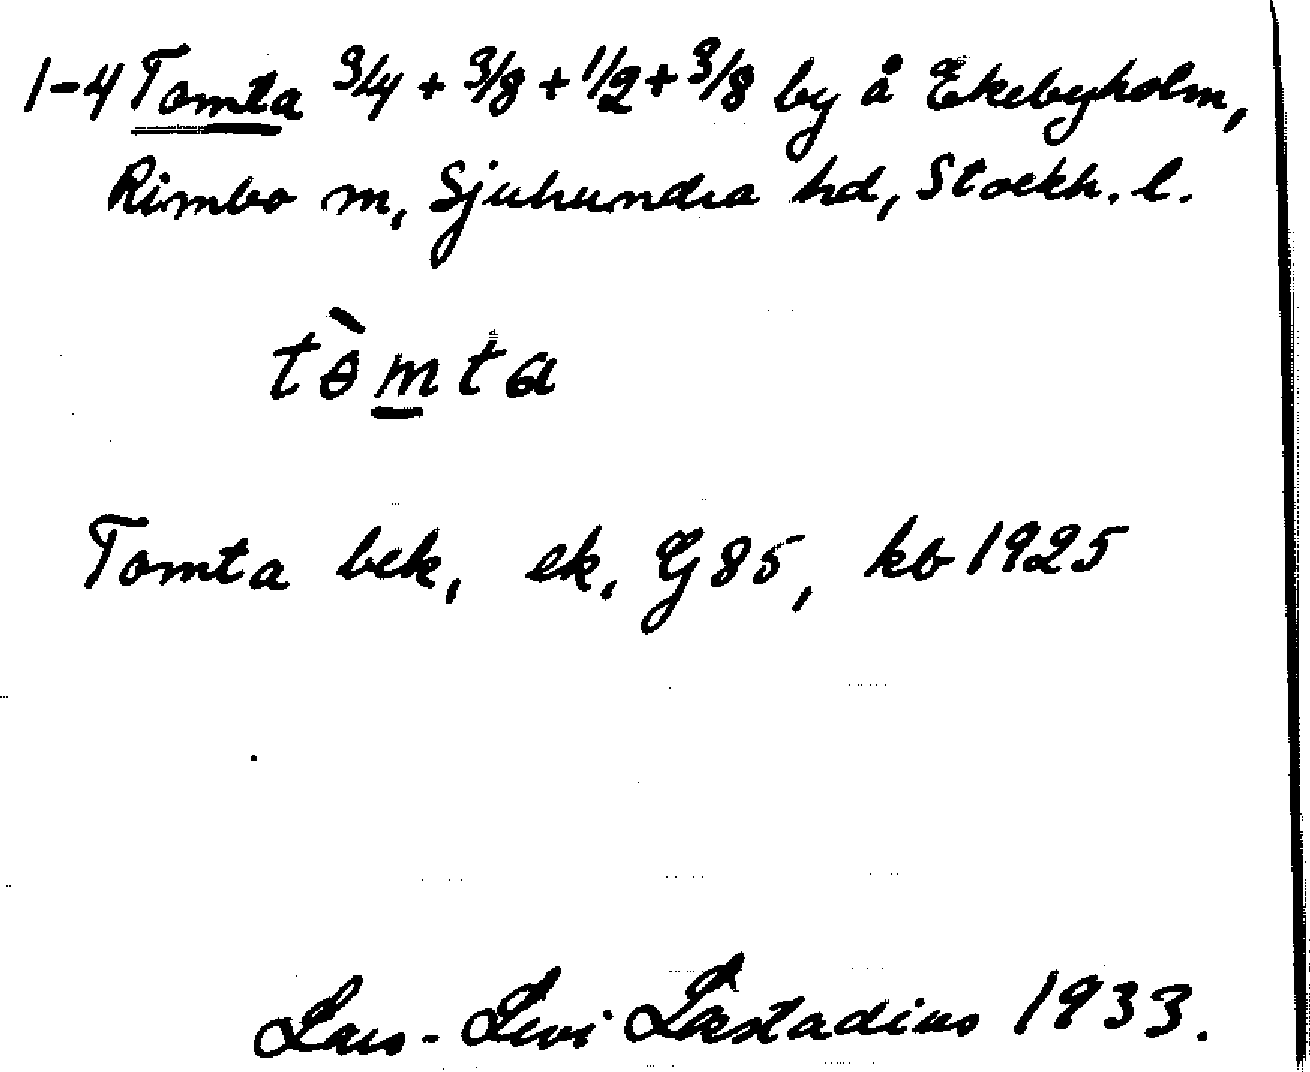 1-4 Tomta 3/4 + 3/8 + 1/2 + 3/8 by å Ekebyholm,
Rimbo sn, Sjuhundra hd, Stockh. l.
tɵ̀m̲ta
Tomta bek, ek, GJ 85, kb 1925
Lars-Levi Læstadius 1933.